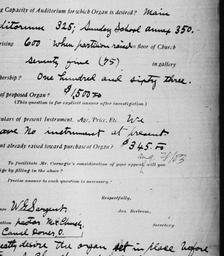 ng Capacity of Auditorium for which Organ is desired? Main
ditorium 325; Sunday School annex 350.
rising 600 when partition raised floor of Church
seventy five (75) in gallery
bership? One hundred and sixty three.
of proposed Organ? $1,500.00
(This question is for explicit answer after investigation)
ulars of present instrument. Age, Price, Etc. We
have no instrument at present
nt already raised toward purchase of Organ? $345.00
To facilitate Mr. Carnegie's consideration of your appeal will you
ige by filling in the above?
Precise answer to each question is necessary.
Respectfully,
Jas. Bertram,
Secretary.
W. G. Sargent
pastor
Canal Dover, O.
desire the organ set in place before